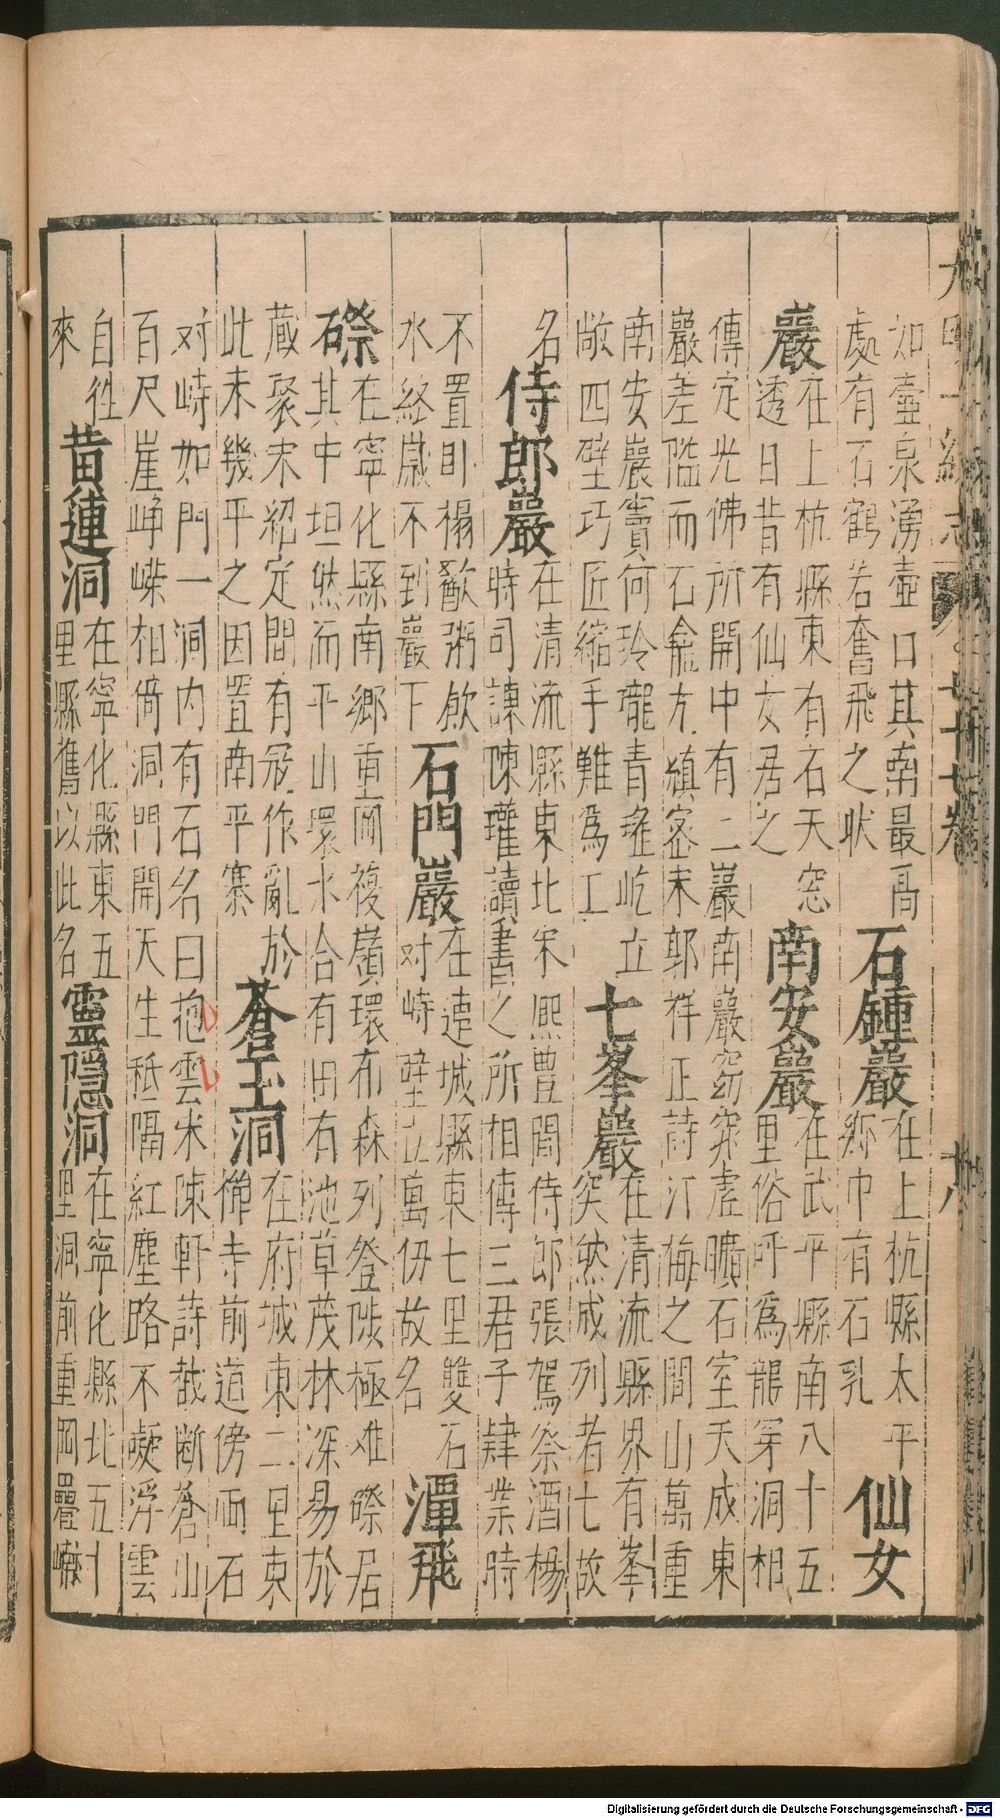 大明一統志 七十七卷 十八
如壺泉湧壺口其南最高
處有石鶴若奮飛之狀
石鍾巖
在上杭縣太平
鄉中有石乳
仙女
巖
在上杭縣東有石天窓
透日昔有仙女居之
南安巖
在武平縣南八十五
里俗呼為龍穿洞相
傳定光佛所開中有二巖南巖窈窕虛曠石室天成東
巖差隘而石龕方縝密宋郭祥正詩汀梅之間山萬重
南安巖竇何玲瓏青瑤屹立
敞四壁巧匠縮手難為工
七峯巖
在清流縣界有峯
突然成列者七故
名
侍郎巖
在清流縣東北宋熈豐間侍郎張駕祭酒楊
時司諫陳瓘讀書之所相傳三君子肄業時
不置卧榻歠粥飲
水終歲不到巖下
石門巖
在連城縣東七里雙石
对峙壁立萬仞故名
潭飛
磜
在寧化縣南鄉重岡複嶺環布森列登陟極难磜居
其中坦然而平山環水合有田有池草茂林深易於
藏聚宋紹定間有冦作亂於
此未幾平之因置南平寨
蒼玉洞
在府城東二里東
禪寺前道傍两石
对峙如門一洞内有石名曰抱雲宋陳軒詩截斷蒼山
百尺崖崢嶸相倚洞門開天生秪隔紅塵路不礙浮雲
自徃
來
黄連洞
在寧化縣東五
里縣舊以此名
靈隱洞
在寧化縣北五十
里洞前重岡疊巘
Digitalisierung gefördert durch die Deutsche Forschungsgemeinschaft - DFG